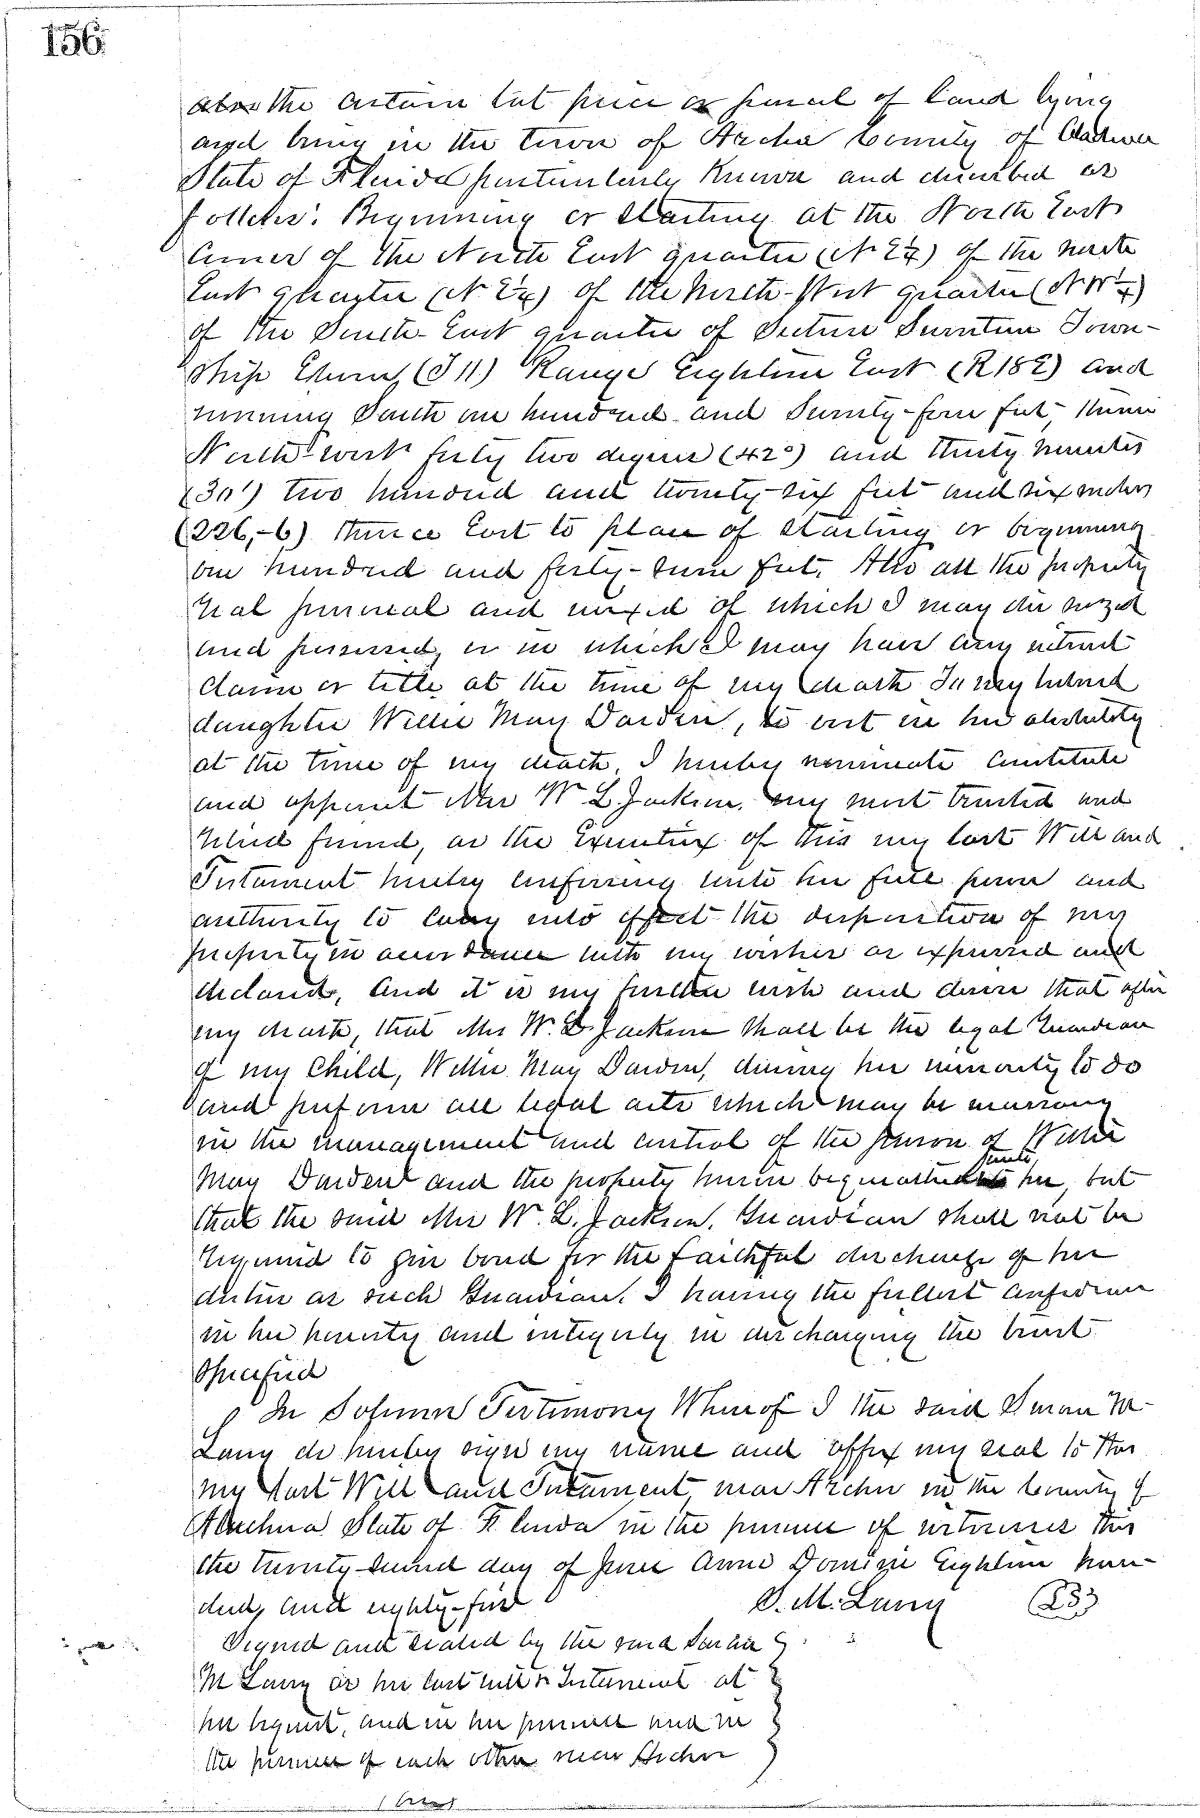 156
also the certain lot piece or parcel of land lying
and being in the town of Archer County of Alachua
State of Florida particularly Known and described as
follows: Beginning or starting at the North East
corner of the North East quarter (N E ¼) of the north
East quarter (N E ¼) of the North-West quarter (N W ¼)
of the South-East quarter of Section Seventeen Town-
ship Eleven (T 11) Range Eighteen East (R 18 E) and
running South one hundred and Seventy-four feet, thence
North-west forty two degrees (42°) and thirty minutes
(30') two hundred and twenty-six feet and six inches
(226,-6) thence East to place of starting or beginning
one hundred and forty-seven feet. Also all the property
real personal and mixed of which I may die seized
and possessed, or in which I may have any interest
claim or title at the time of my death To my beloved
daughter Willie May Darden, to vest in her absolutely
at the time of my death. I hereby nominate constitute
and appoint Mrs W L Jackson, my most trusted and
valued friend, as the Executrix of this my last Will and
Testament hereby conferring unto her full power and
authority to carry into effect the disposition of my
property in accordance with my wishes as expressed and
declared, And it is my further wish and desire that after
my death, that Mrs W. L. Jackson shall be the legal Guardian
of my Child, Willie May Darden, during her minority to do
and perform all legal acts which may be necessary
in the management and control of the person of Willie
May Darden and the property herein bequeathed unto her, but
that the said Mrs W. L. Jackson, Guardian shall not be
required to give bond for the faithful discharge of her
duties as such Guardian. I having the fullest confidence
in her honesty and integrity in discharging the trust
specified
In Solemn Testimony Whereof I the said Susan M
Lany do hereby sign my name and affix my seal to this
my last Will and Testament, near Archer in the County of
Alachua State of Florida in the presence of witnesses this
the twenty-second day of June Anno Domini Eighteen hun-
dred, and eighty-five S. M. Lany
Signed and sealed by the said
M Lany as her last will & Testament at
her request, and in her presence and in
the presence of each other near Archer